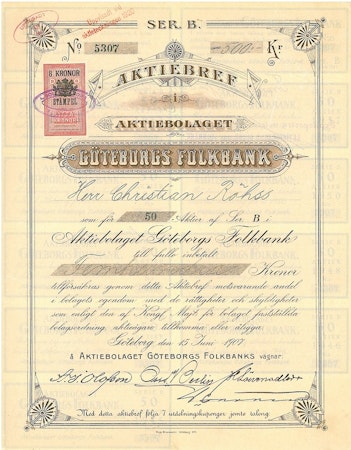 SER. B.
No 5307 500 Kr
8 KRONOR
STÄMPEL
AKTIEBREF
i
AKTIEBOLAGET
GÖTEBORGS FOLKBANK
Herr Christian Röhss
som för 50 Aktier af Ser B i
Aktiebolaget Göteborgs Folkbank
till fullo inbetalt
Femhundra Kronor
tillförsäkras genom detta Aktiebref motsvarande andel
i bolagets egendom med de rättigheter och skyldigheter
som enligt den af Kongl. Maj:t för bolaget fastställda
bolagsordning, aktieägare tillkomma eller åligga.
Göteborg den 15 Juni 1907
å AKTIEBOLAGET GÖTEBORGS FOLKBANKS vägnar:
Med detta aktiebref följa 7 utdelningskuponger jemte talong.